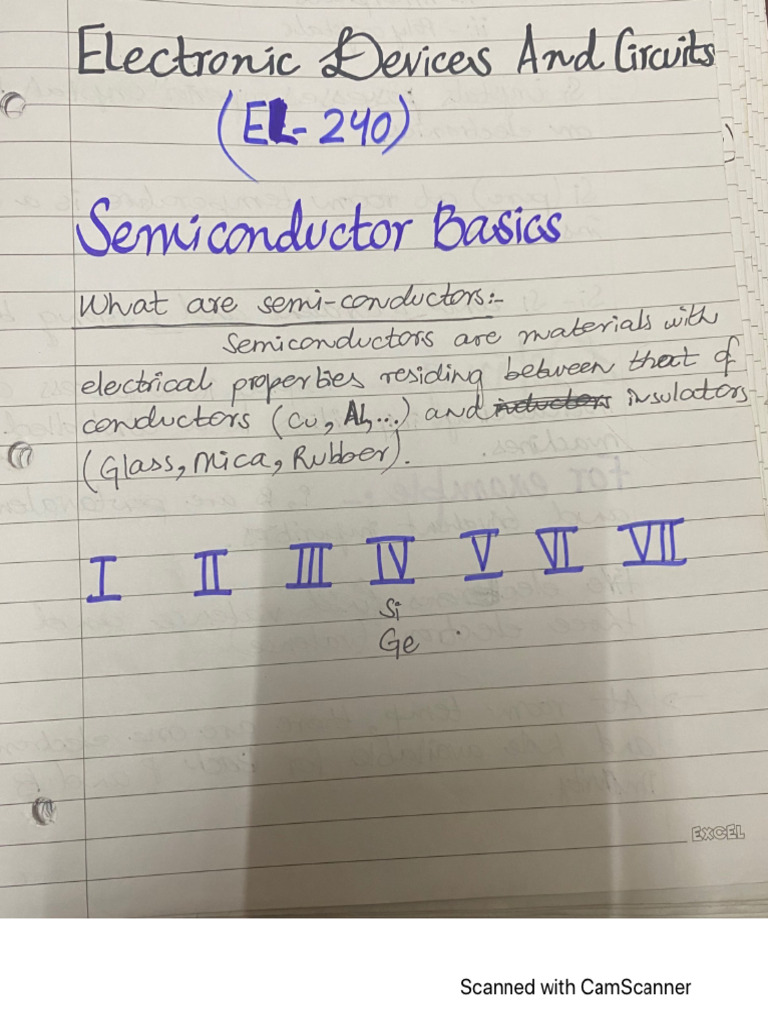 Electronic Devices And Circuits
(EL-240)
Semiconductor Basics
What are semi-conductors:-
Semiconductors are materials with
electrical properties residing between that of
conductors (Cu, Al,...) and inductors insulators
(Glass, Mica, Rubber).
I II III IV V VI VII
Si
Ge
EXCEL
Scanned with CamScanner